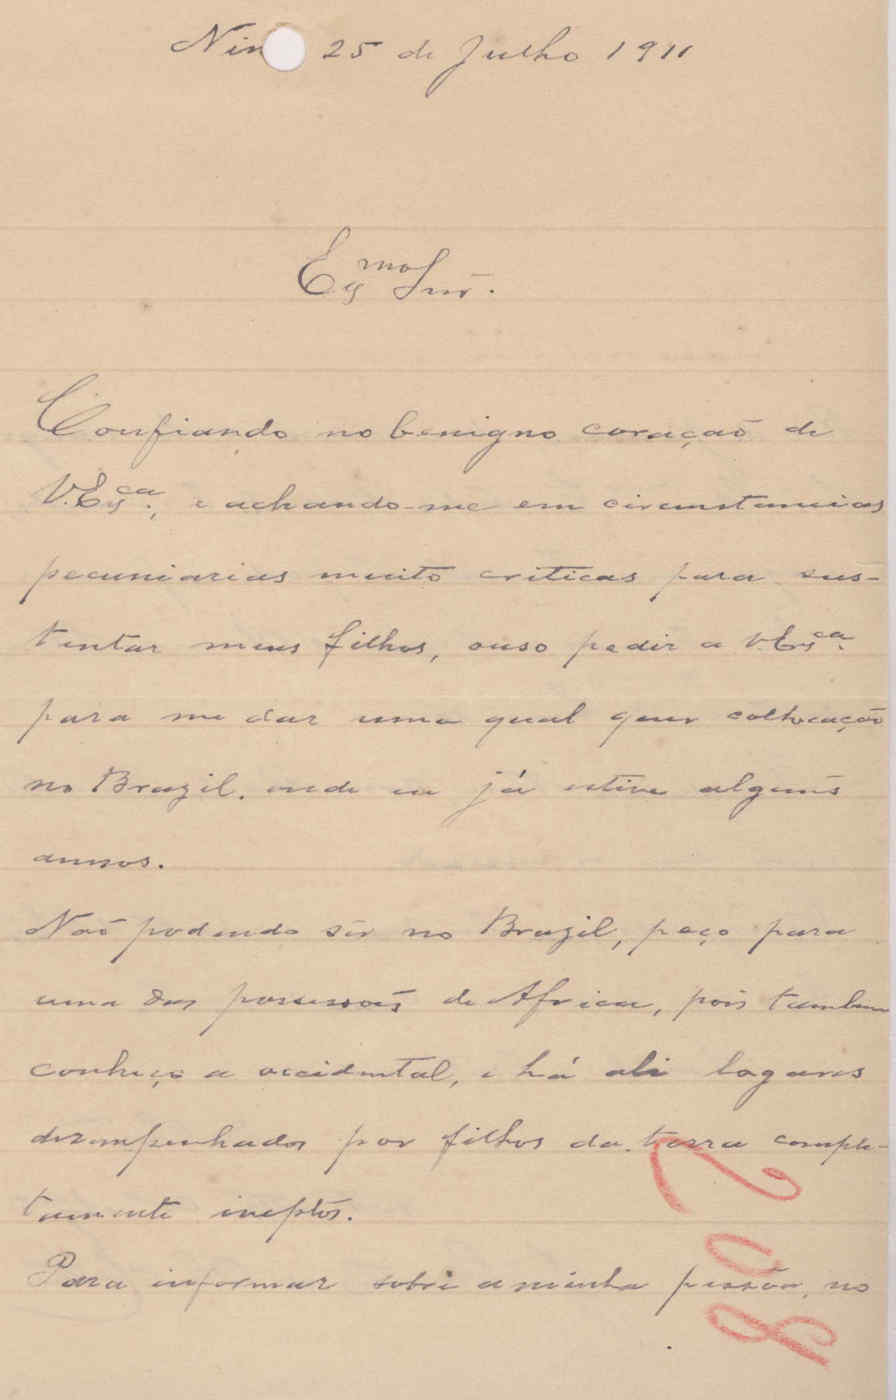 25 de Julho 1911
Exmo Snr.
Confiando no benigno coração de
V. Exca., e achando-me em circumstancias
pecuniarias muito criticas para sus-
tentar meus filhos, ouso pedir a V. Exca.
para me dar uma qual quer collocação
no Brazil, onde eu já estive alguns
annos.
Não podendo sêr no Brazil, peço para
uma das possessões de Africa, pois tambem
conheço a occidental, e há ali logares
dezempenhados por filhos da terra comple-
tamente ineptos.
Para informar sobre a minha pessôa, no
208